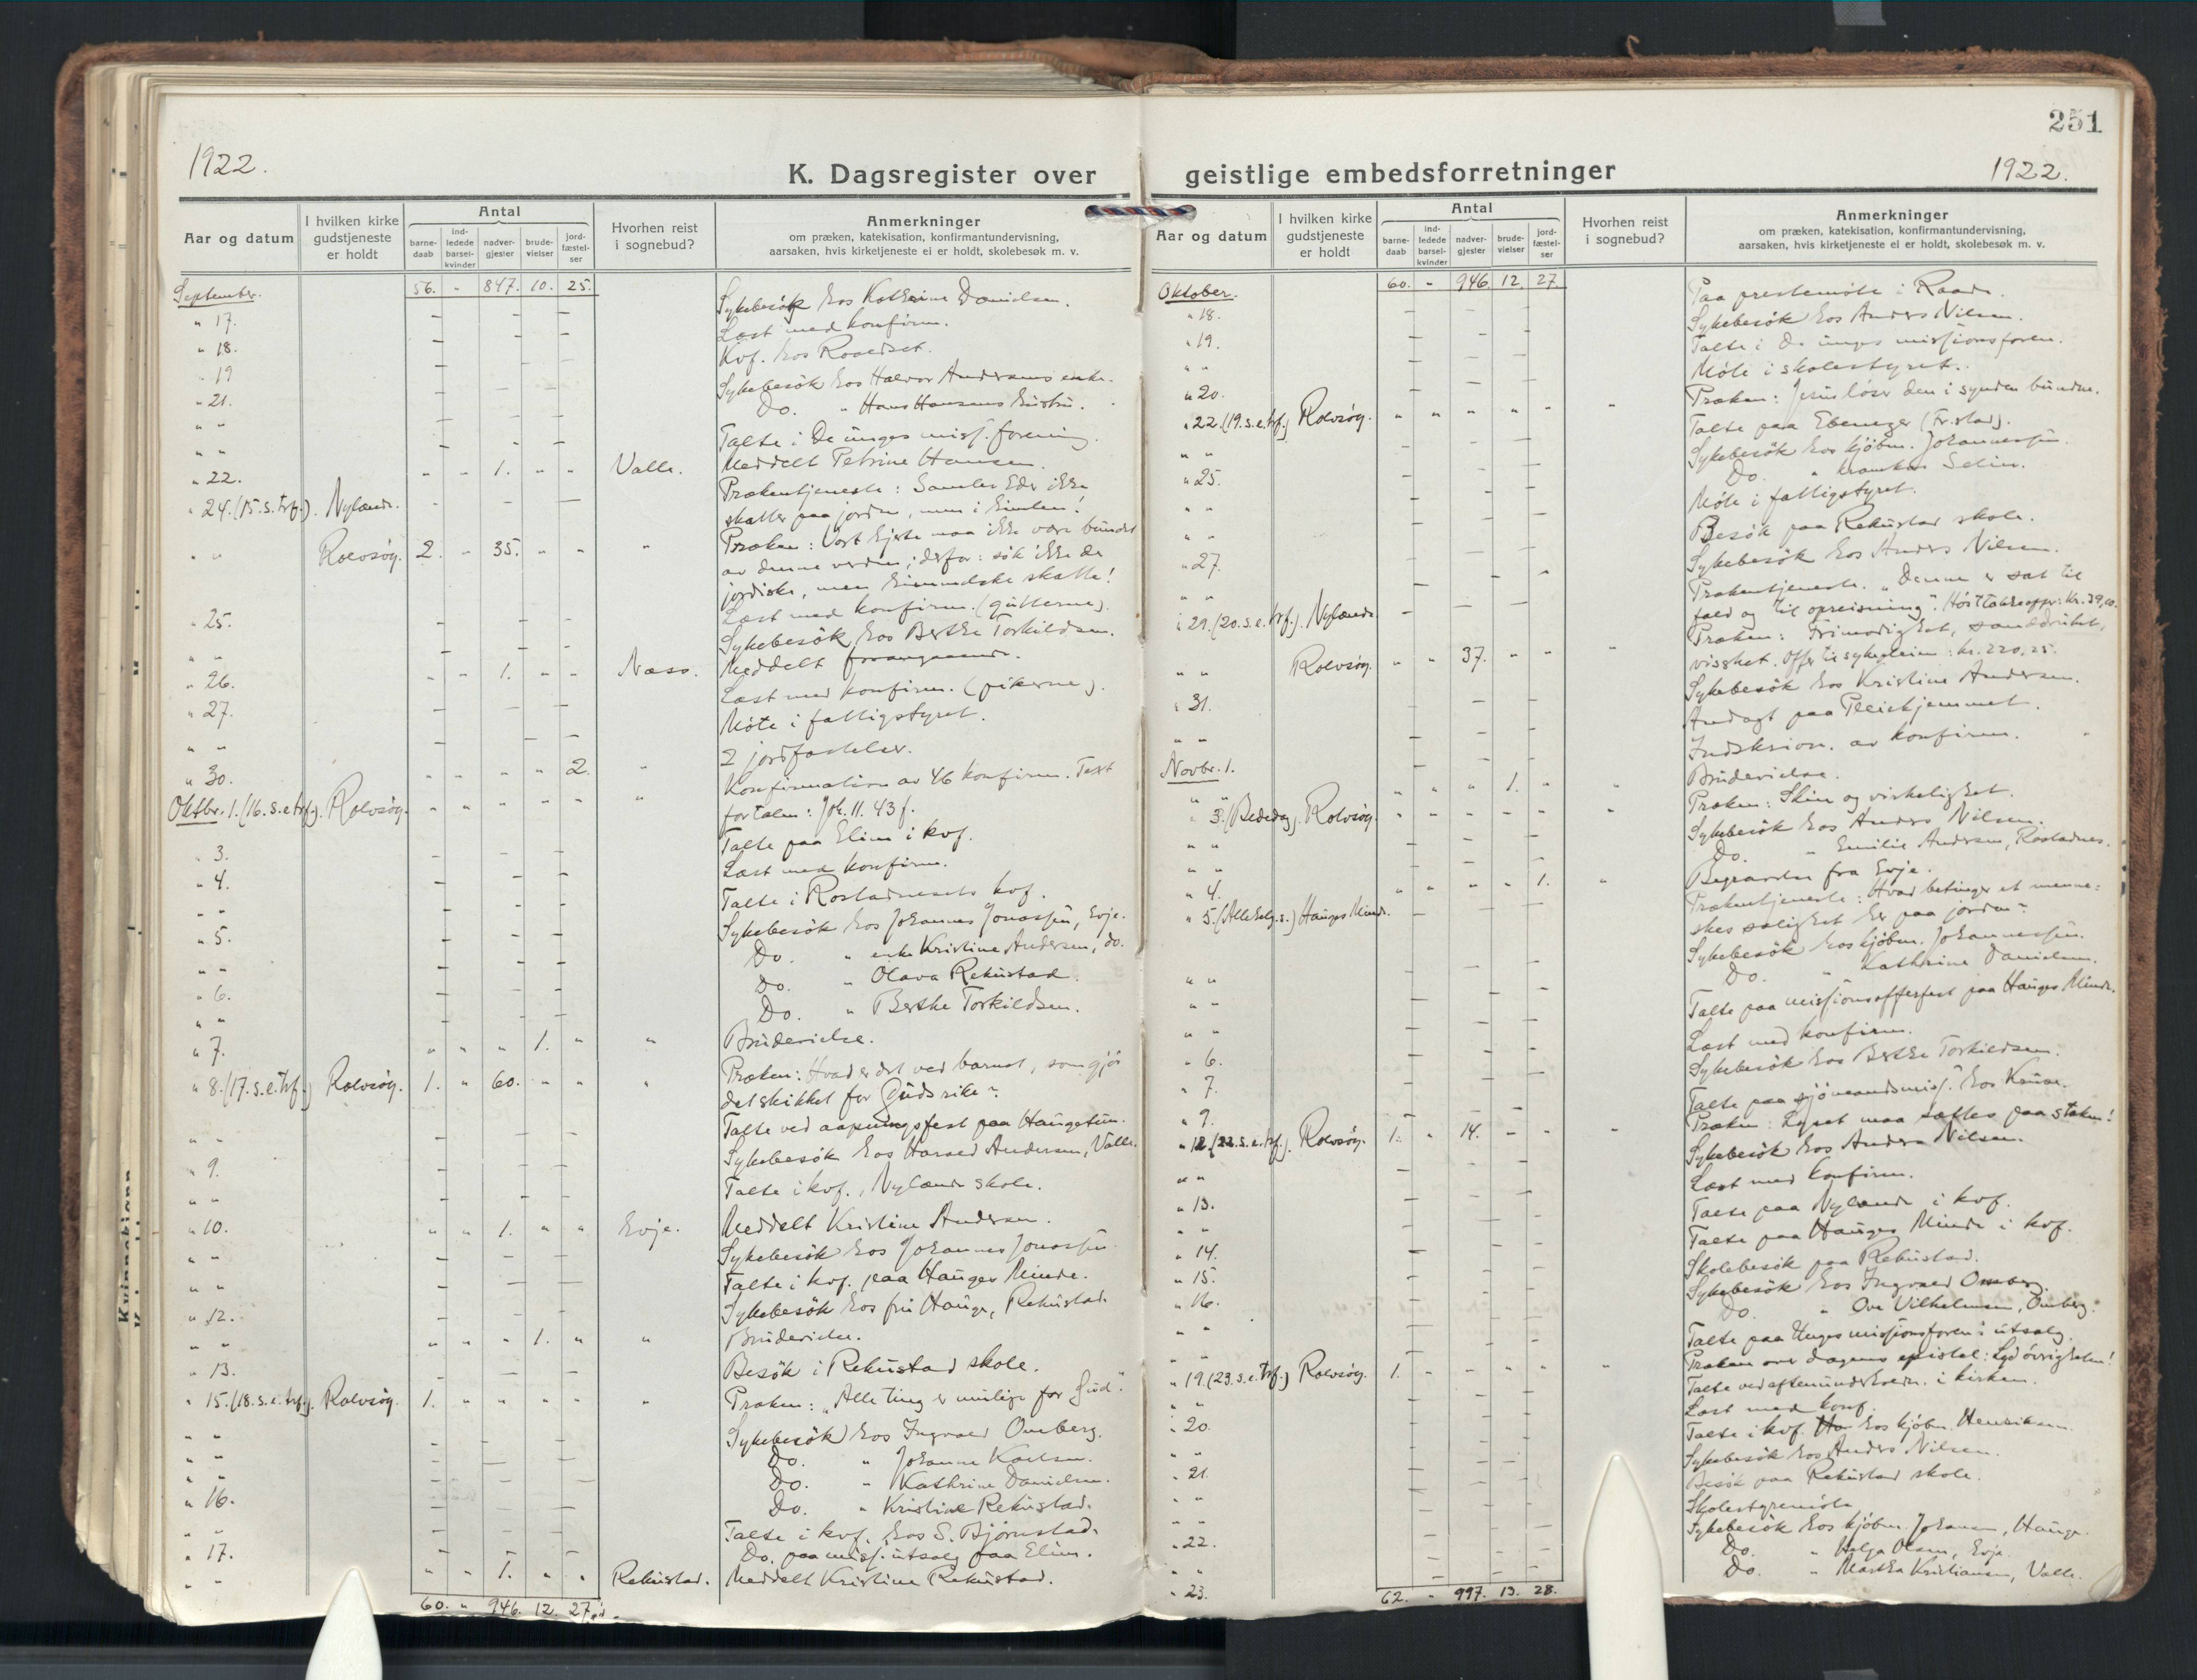 251
1922.
K. Dagsregister over
Aar og datum
I hvilken kirke gudstjeneste er holdt
Antal
barne-daab
ind-ledede barsel-kvinder
nadver-gjester
brude-vielser
jord-fæstel-ser
Hvorhen reist i sognebud?
Anmerkninger
om præken, katekisation, konfirmantundervisning,
aarsaken, hvis kirketjeneste ei er holdt, skolebesøk m. v.
September. 56. " 847. 10. 25.
" 17. Sykebesök hos Kathrine Danielsen.
" 18. Læst med konfirm.
" 19 Kvf. hos Roaldset.
" 21. Sykebesök hos Halvor Andersens enke.
" " Do. " Hans Hansens hustru.
" " Talte i De unges miss. forening.
" 22. " " 1. " " Valle. Meddelt Petrine Hansen.
" 24. (15. s. trf.). Nylænde. Prækentjeneste: Samler Eder ikke
skatter paa jorden, men i himlen!
" " Rolvsøy. 2. " 35. " " " Præken: Vort hjerte maa ikke være bundet
av denne verden; derfor: søk ikke de
jordiske, men himmelske skatte!
" 25. Læst med konfirm. (gutterne).
" " Sykebesök hos Berthe Torkildsen.
" 26. " " 1. " " Næss. Meddelt foranstaaende.
" 27. Læst med konfirm. (pikerne).
" " Möte i fattigstyret.
" 30. " " " " 2. " 2 jordfæstelser.
Oktbr. 1. (16. s. e trf.). Rolvsøy. " " " " " " Konfirmation av 46 konfirm. Text
for talen: Joh. 11. 43 f.
" 3. Talte paa Elim i kvf.
" 4. Læst med konfirm.
" " Talte i Rostadnesets kvf.
" 5. Sykebesök hos Johannes Jonassen, Evje.
" " Do. " enke Kristine Andersen, do.
" 6. Do. " Olava Rekustad.
" " Do. " Berthe Torkildsen.
" 7. " " " 1. " " Brudevielse.
" 8. (17. s. e. trf.) Rolvsøy. 1. " 60. " " " Præken: Hvad er det ved barnet, som gjör
det skikket for Guds rike?
" " Talte ved aapningsfest paa Haugetun.
" 9. Sykebesök hos Harald Andersen, Valle.
" " Talte i kvf., Nylænde skole.
" 10. " " 1. " " Evje. Meddelt Kristine Andersen.
" " Sykebesök hos Johannes Jonassen
" " Talte i kvf. paa Hauges Minde.
" 12. Sykebesök hos fru Hauge, Rekustad.
" " " " " 1. " " Brudevielse.
" 13. Besök i Rekustad skole.
" 15. (18. s. e. trf.). Rolvsøy. 1. " " " " " Præken: "Alle ting er mulige for Gud".
" " Sykebesök hos Ingvald Omberg.
" " Do. " Johanne Karlsen.
" " Do. " Kathrine Danielsen.
" 16. Do. " Kristine Rekustad.
" " Talte i kvf. hos S. Björnstad.
" 17. Do. paa miss. utsalg paa Elim.
" " " " 1. " " Rekustad. Meddelt Kristine Rekustad.
60. " 946. 12. 27.
geistlige embedsforretninger
1922.
Aar og datum
I hvilken kirke gudstjeneste er holdt
Antal
barne-daab
ind-ledede barsel-kvinder
nadver-gjester
brude-vielser
jord-fæstel-ser
Hvorhen reist i sognebud?
Anmerkninger
om præken, katekisation, konfirmantundervisning,
aarsaken, hvis kirketjeneste ei er holdt, skolebesøk m. v.
Oktober. 60. " 946. 12. 27.
" 18. Paa prestemöte i Raade.
" 19. Sykebesök hos Anders Nilsen.
" " Talte i De unges missionsforen.
" 20. Möte i skolestyret.
" 22. (19. s. e. trf.) Rolvsøy. " " " " " " Præken: Jesus löser den i synden bundne.
" " Talte paa Ebenezer (Fr.stad).
" 25. Sykebesök hos kjöbm. Johannessen.
" " Do. " Selin.
" " Möte i fattigstyret.
" 27. Besök paa Rekustad skole.
" " Sykebesök hos Anders Nilsen.
" 29. (20. s. e. trf.). Nylænde Prækentjeneste. "Denne er sat til
fald og til opreisning". Hösttakkeoffer: kr. 39,10.
" " Rolvsøy. " " 37. " " " Præken: Frimodighet, sanddruhet,
visshet. Offer til sykepleien: kr. 220,25.
" 31. Sykebesök hos Kristine Andersen.
" " Andagt paa Pleiehjemmet.
Novbr. 1. Indskrivn. av konfirm.
" " " " " 1. " " Brudevielse.
" 3. (Bededag). Rolvsøy. " " " " " " Præken: Skin og virkelighet.
" " Sykebesök hos Anders Nilsen.
" " Do. " Emilie Andersen, Rostadnes.
" 4. " " " " 1. " Begravelse fra Evje.
" 5. (Allehelg. s.) Hauges Minde. Prækentjeneste: Hvad betinger et menne-
skes salighet her paa jorden?
" " Sykebesök hos kjöbm. Johannessen.
" " Do. " Kathrine Danielsen.
" " Talte paa missionsofferfest paa Hauges Minde.
" 6. Læst med konfirm.
" 7. Sykebesök hos Berthe Torkildsen.
" 9. Talte paa sjömandsmiss. hos Kruse.
" 12. (22. s. e. trf.). Rolvsøy. 1. " 14. " " " Præken: Lyset maa sættes paa staken!
" " Sykebesök hos Anders Nilsen.
" 13. Læst med konfirm.
" " Talte paa Nylænde i kvf.
" 14. Talte paa Hauges Minde i kvf.
" 15. Skolebesök paa Rekustad.
" 16. Sykebesök hos Ingvald Omberg.
" " Do. " Ove Vilhelmsen, Omberg.
" " Talte paa Unges missionsforen's utsalg.
" 19. (23. s. e. trf.) Rolvsøy. 1. " " " " " Præken over dagens epistel: Lyd övrigheten!
" " Talte ved aftenunderholdn. i kirken.
" 20. Læst med konf.
" " Talte i kvf. hos kjöbm. Henriksen
" 21. Sykebesök hos Anders Nilsen.
" " Besök paa Rekustad skole.
" " Skolestyremöte
" 22. Sykebesök hos kjöbm. Johansen, Hauge.
" " Do. " Helga Olsen, Evje.
" 23. Do. " Martha Kristiansen, Valle.
62. " 997. 13. 28.